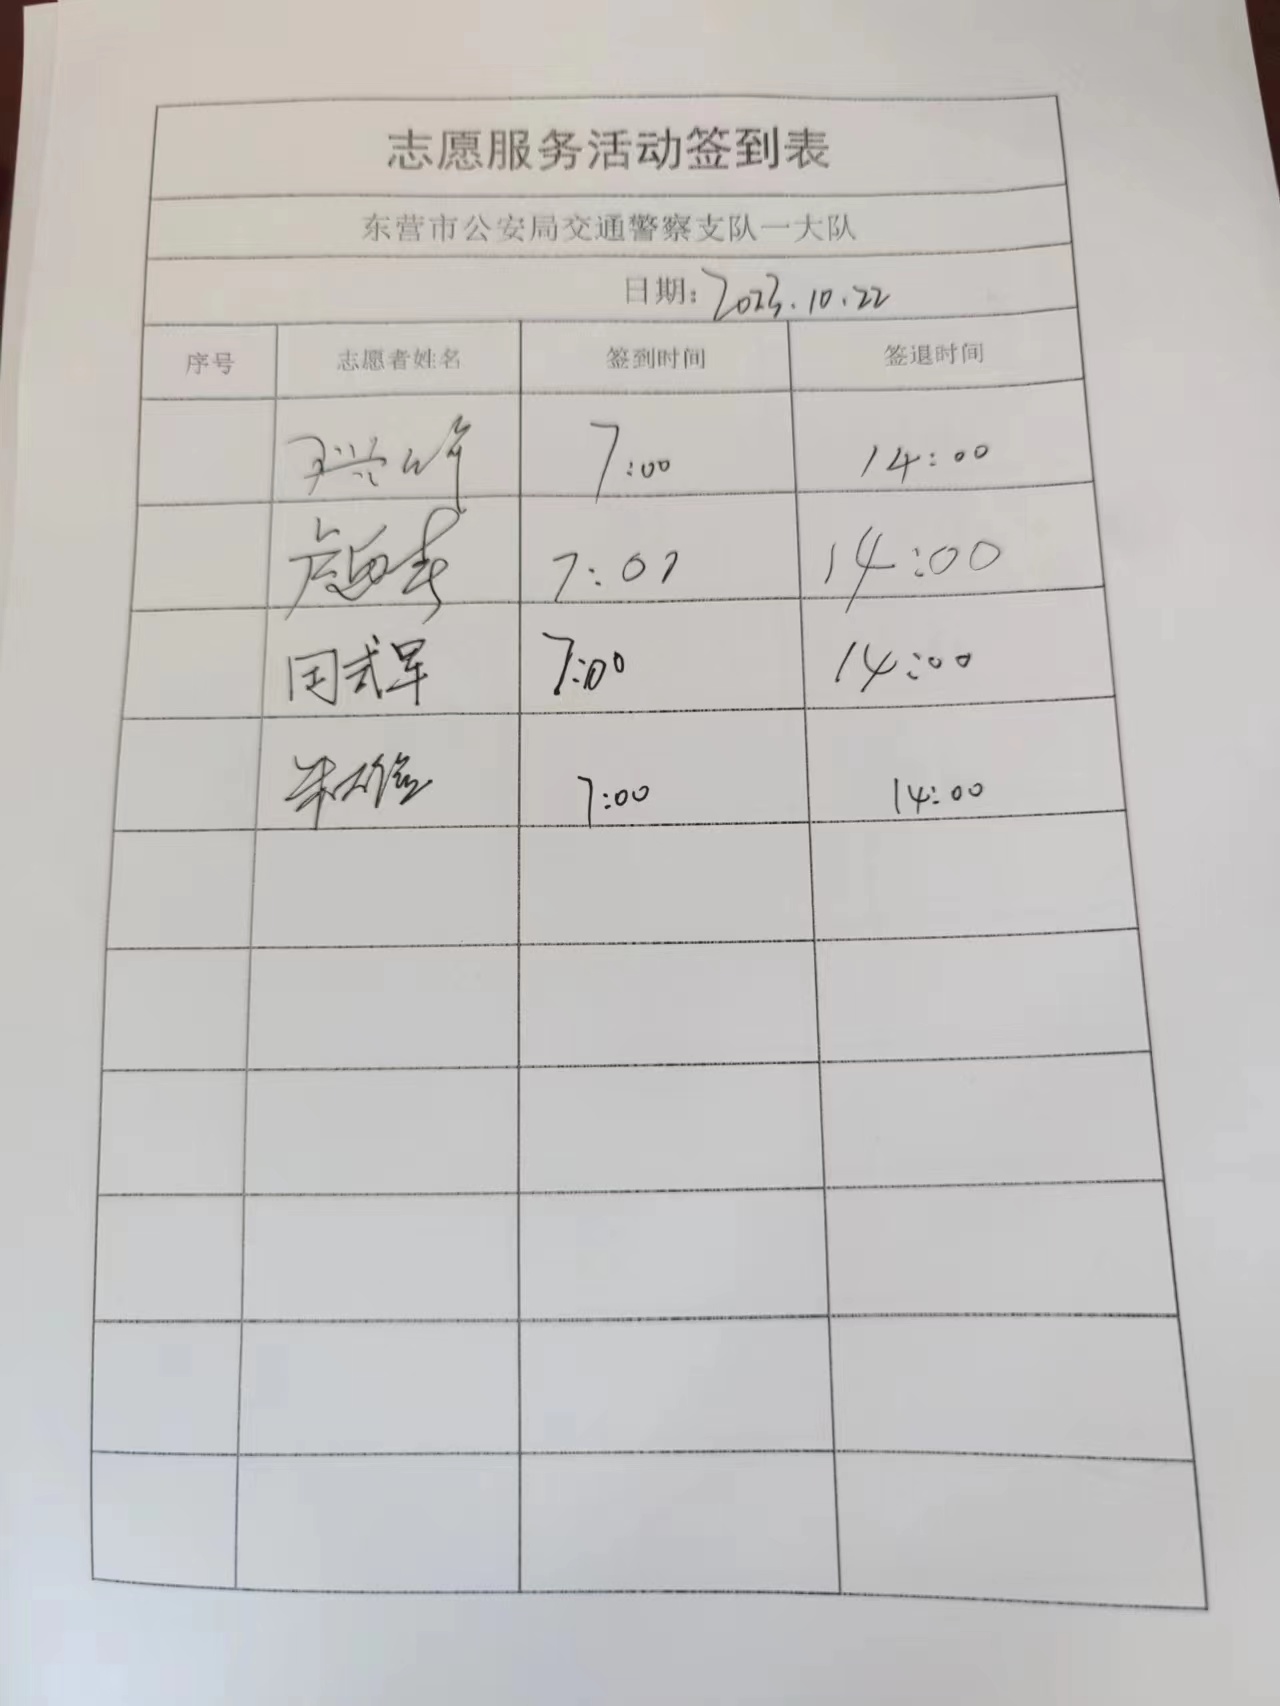 志愿服务活动签到表
东营市公安局交通警察支队一大队
日期: 2023.10.22
序号 志愿者姓名 签到时间 签退时间
7:00 14:00
7:01 14:00
闫式军 7:00 14:00
7:00 14:00